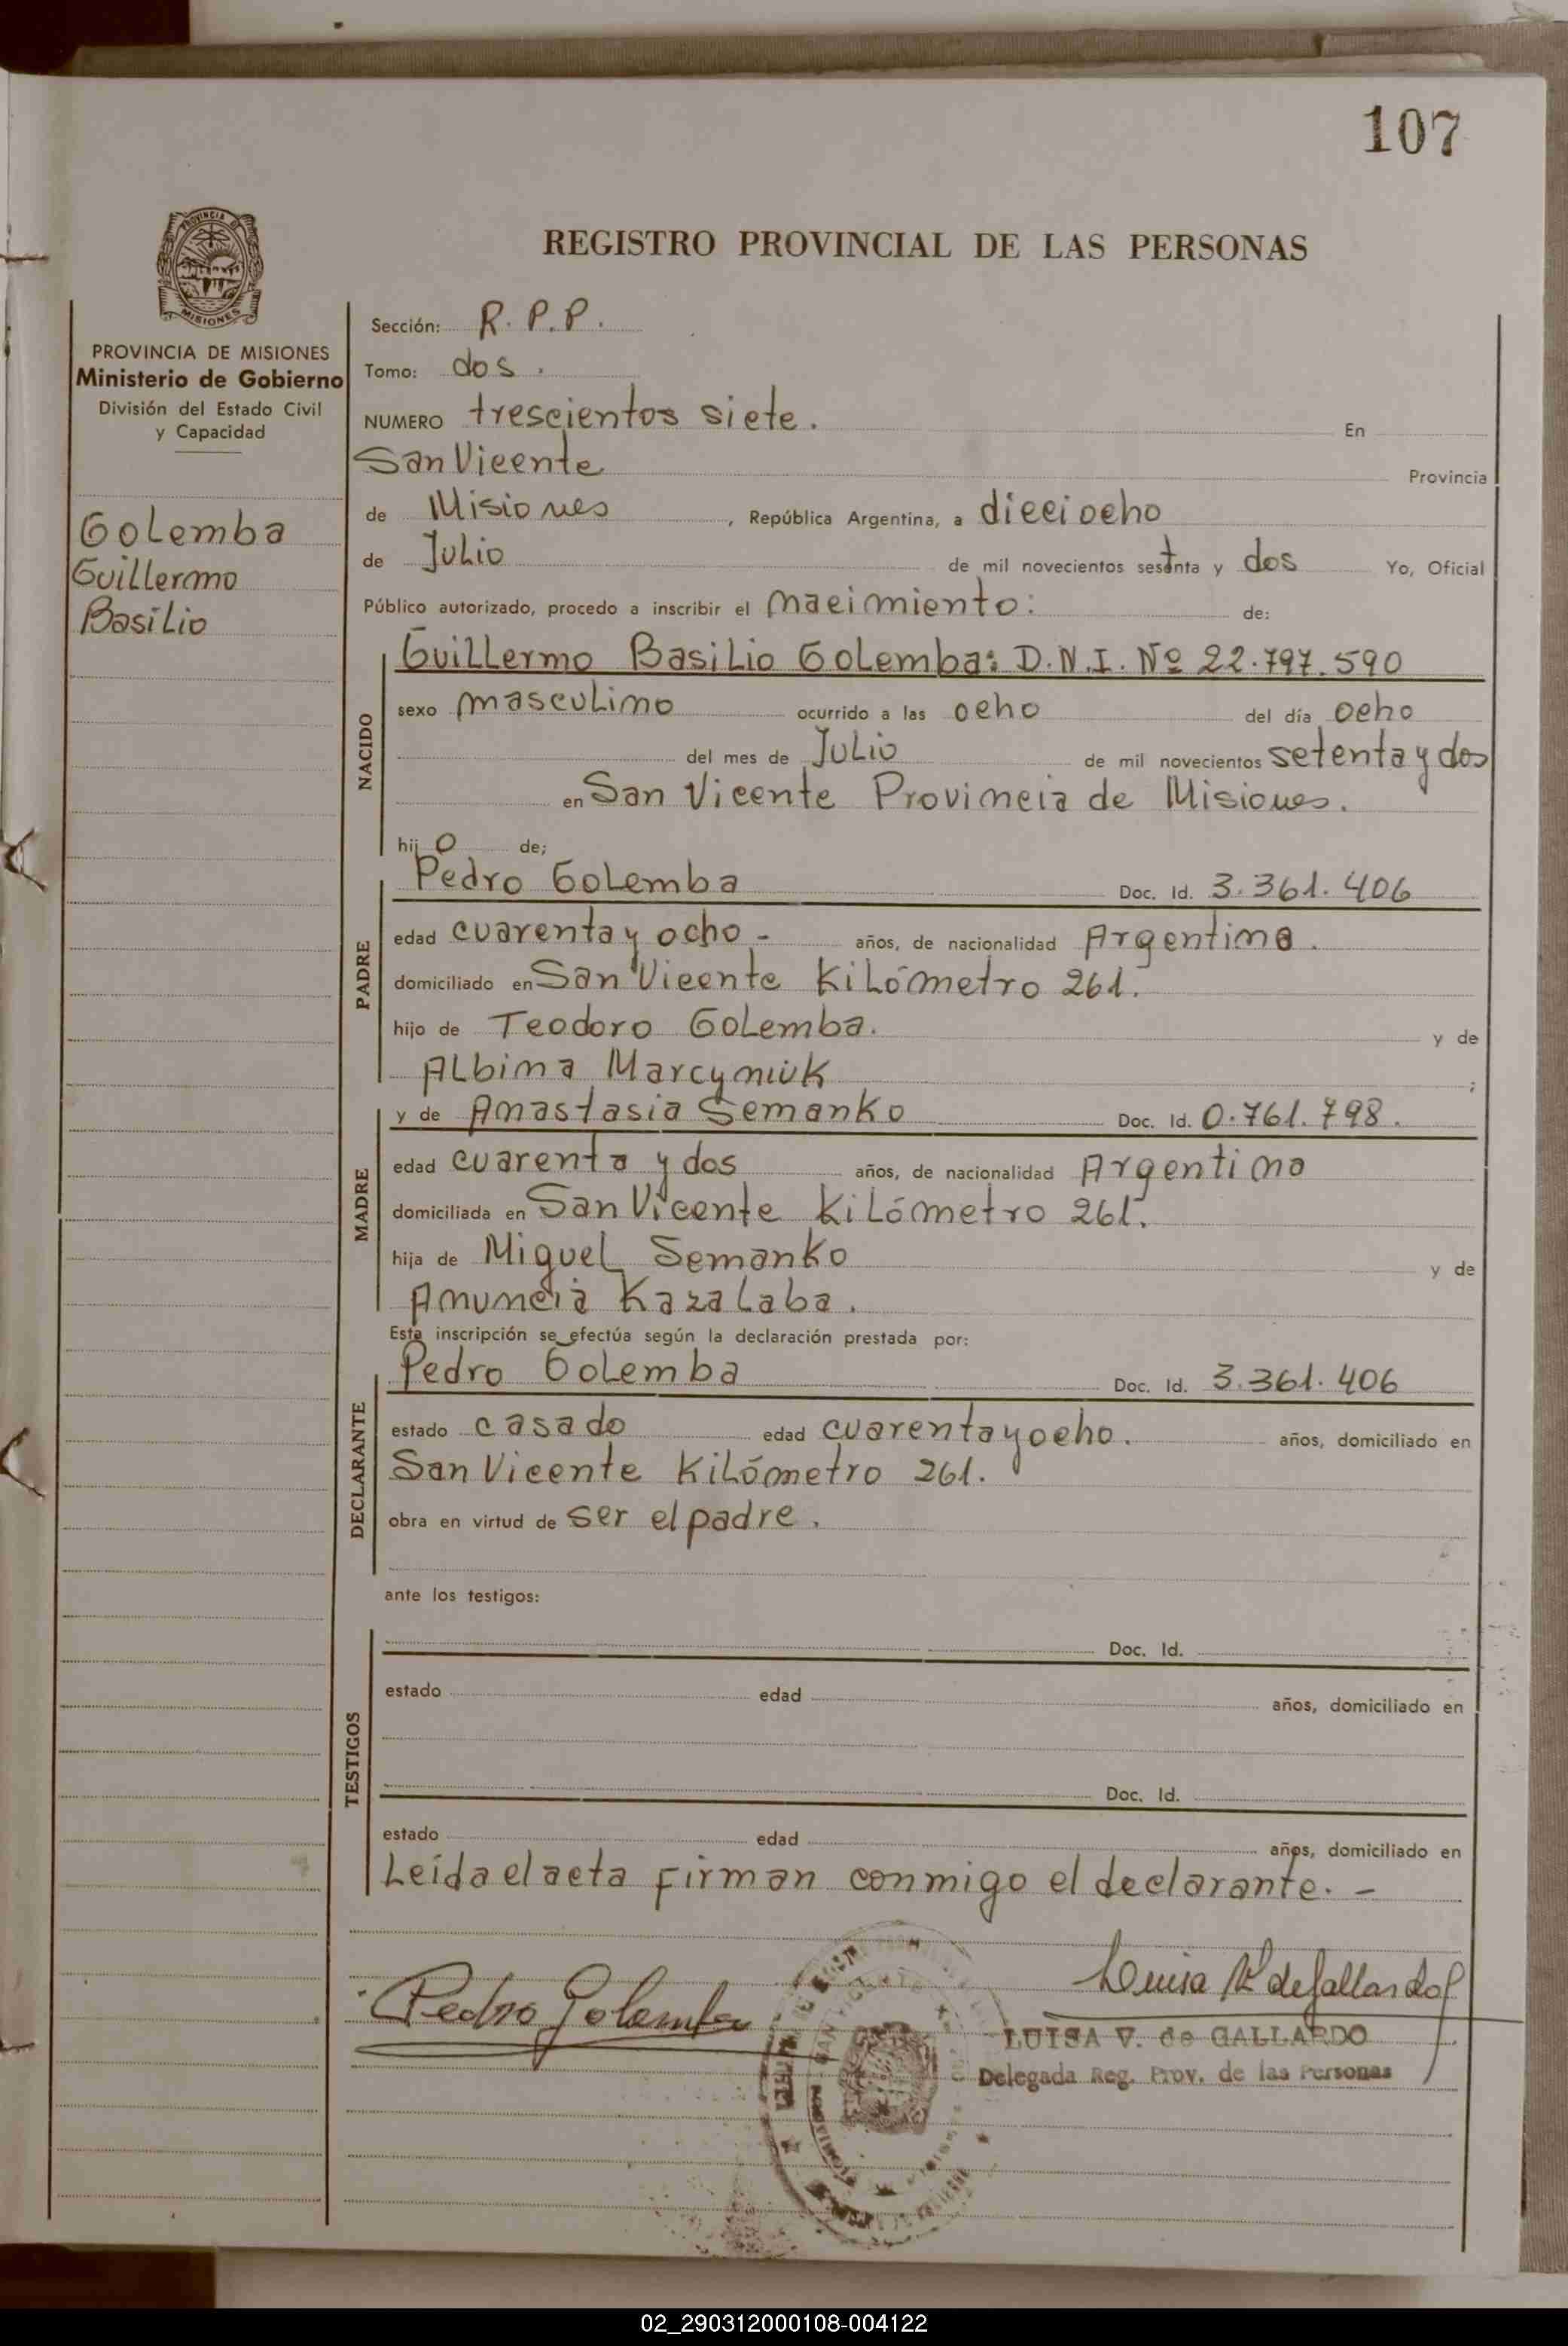 107
REGISTRO PROVINCIAL DE LAS PERSONAS
MISIONES
PROVINCIA DE MISIONES
Ministerio de Gobierno
División del Estado Civil
y Capacidad
Golemba
Guillermo
Basilio
Sección: R. P. P.
Tomo: dos.
NUMERO trescientos siete. En
San Vicente Provincia
de Misiones, República Argentina, a dieciocho
de Julio de mil novecientos sesenta y dos Yo, Oficial
Público autorizado, procedo a inscribir el nacimiento: de:
NACIDO
Guillermo Basilio Golemba: D.N.I. Nº 22.797.590
sexo masculino ocurrido a las ocho del día ocho
del mes de Julio de mil novecientos setenta y dos
en San Vicente Provincia de Misiones.
hijo de;
PADRE
Pedro Golemba Doc. Id. 3.361.406
edad cuarenta y ocho - años, de nacionalidad Argentina.
domiciliado en San Vicente Kilómetro 261.
hijo de Teodoro Golemba. y de
Albina Marcyniuk ;
MADRE
y de Anastasia Semanko Doc. Id. 0.761.798.
edad cuarenta y dos años, de nacionalidad Argentina
domiciliada en San Vicente Kilómetro 261.
hija de Miguel Semanko y de
Anuncia Kazalaba.
Esta inscripción se efectúa según la declaración prestada por:
DECLARANTE
Pedro Golemba Doc. Id. 3.361.406
estado casado edad cuarenta y ocho. años, domiciliado en
San Vicente Kilómetro 261.
obra en virtud de ser el padre.
ante los testigos:
TESTIGOS
Doc. Id.
estado edad años, domiciliado en
Doc. Id.
estado edad años, domiciliado en
Leída el acta firman conmigo el declarante. -
Pedro Golemba
Luisa V. de Gallardo
LUISA V. de GALLARDO
Delegada Reg. Prov. de las Personas
02_290312000108-004122